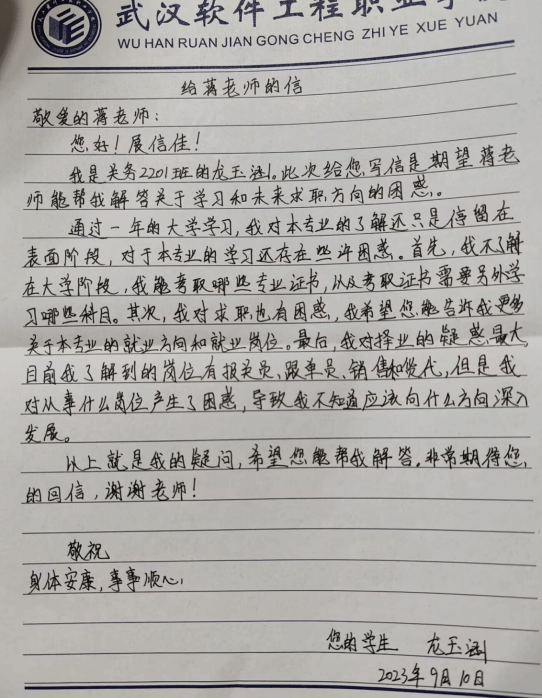 武汉软件工程职业学院
WU HAN RUAN JIAN GONG CHENG ZHI YE XUE YUAN
给蒋老师的信
敬爱的蒋老师：
您好！展信佳！
我是关务2201班的龙玉涵。此次给您写信是期望蒋老
师能帮我解答关于学习和未来求职方向的困惑。
通过一年的大学学习，我对本专业的了解还只是停留在
表面阶段，对于本专业的学习还存在些许困惑。首先，我不了解
在大学阶段，我能考取哪些专业证书，以及考取证书需要另外学
习哪些科目。其次，我对求职也有困惑，我希望您能告诉我更多
关于本专业的就业方向和就业岗位。最后，我对择业的疑惑最大，
目前我了解到的岗位有报关员、跟单员、销售和货代，但是我
对从事什么岗位产生了困惑，导致我不知道应该向什么方向深入
发展。
以上就是我的疑问，希望您能帮我解答，非常期待您
的回信，谢谢老师！
敬祝
身体安康，事事顺心
您的学生 龙玉涵
2023年9月10日